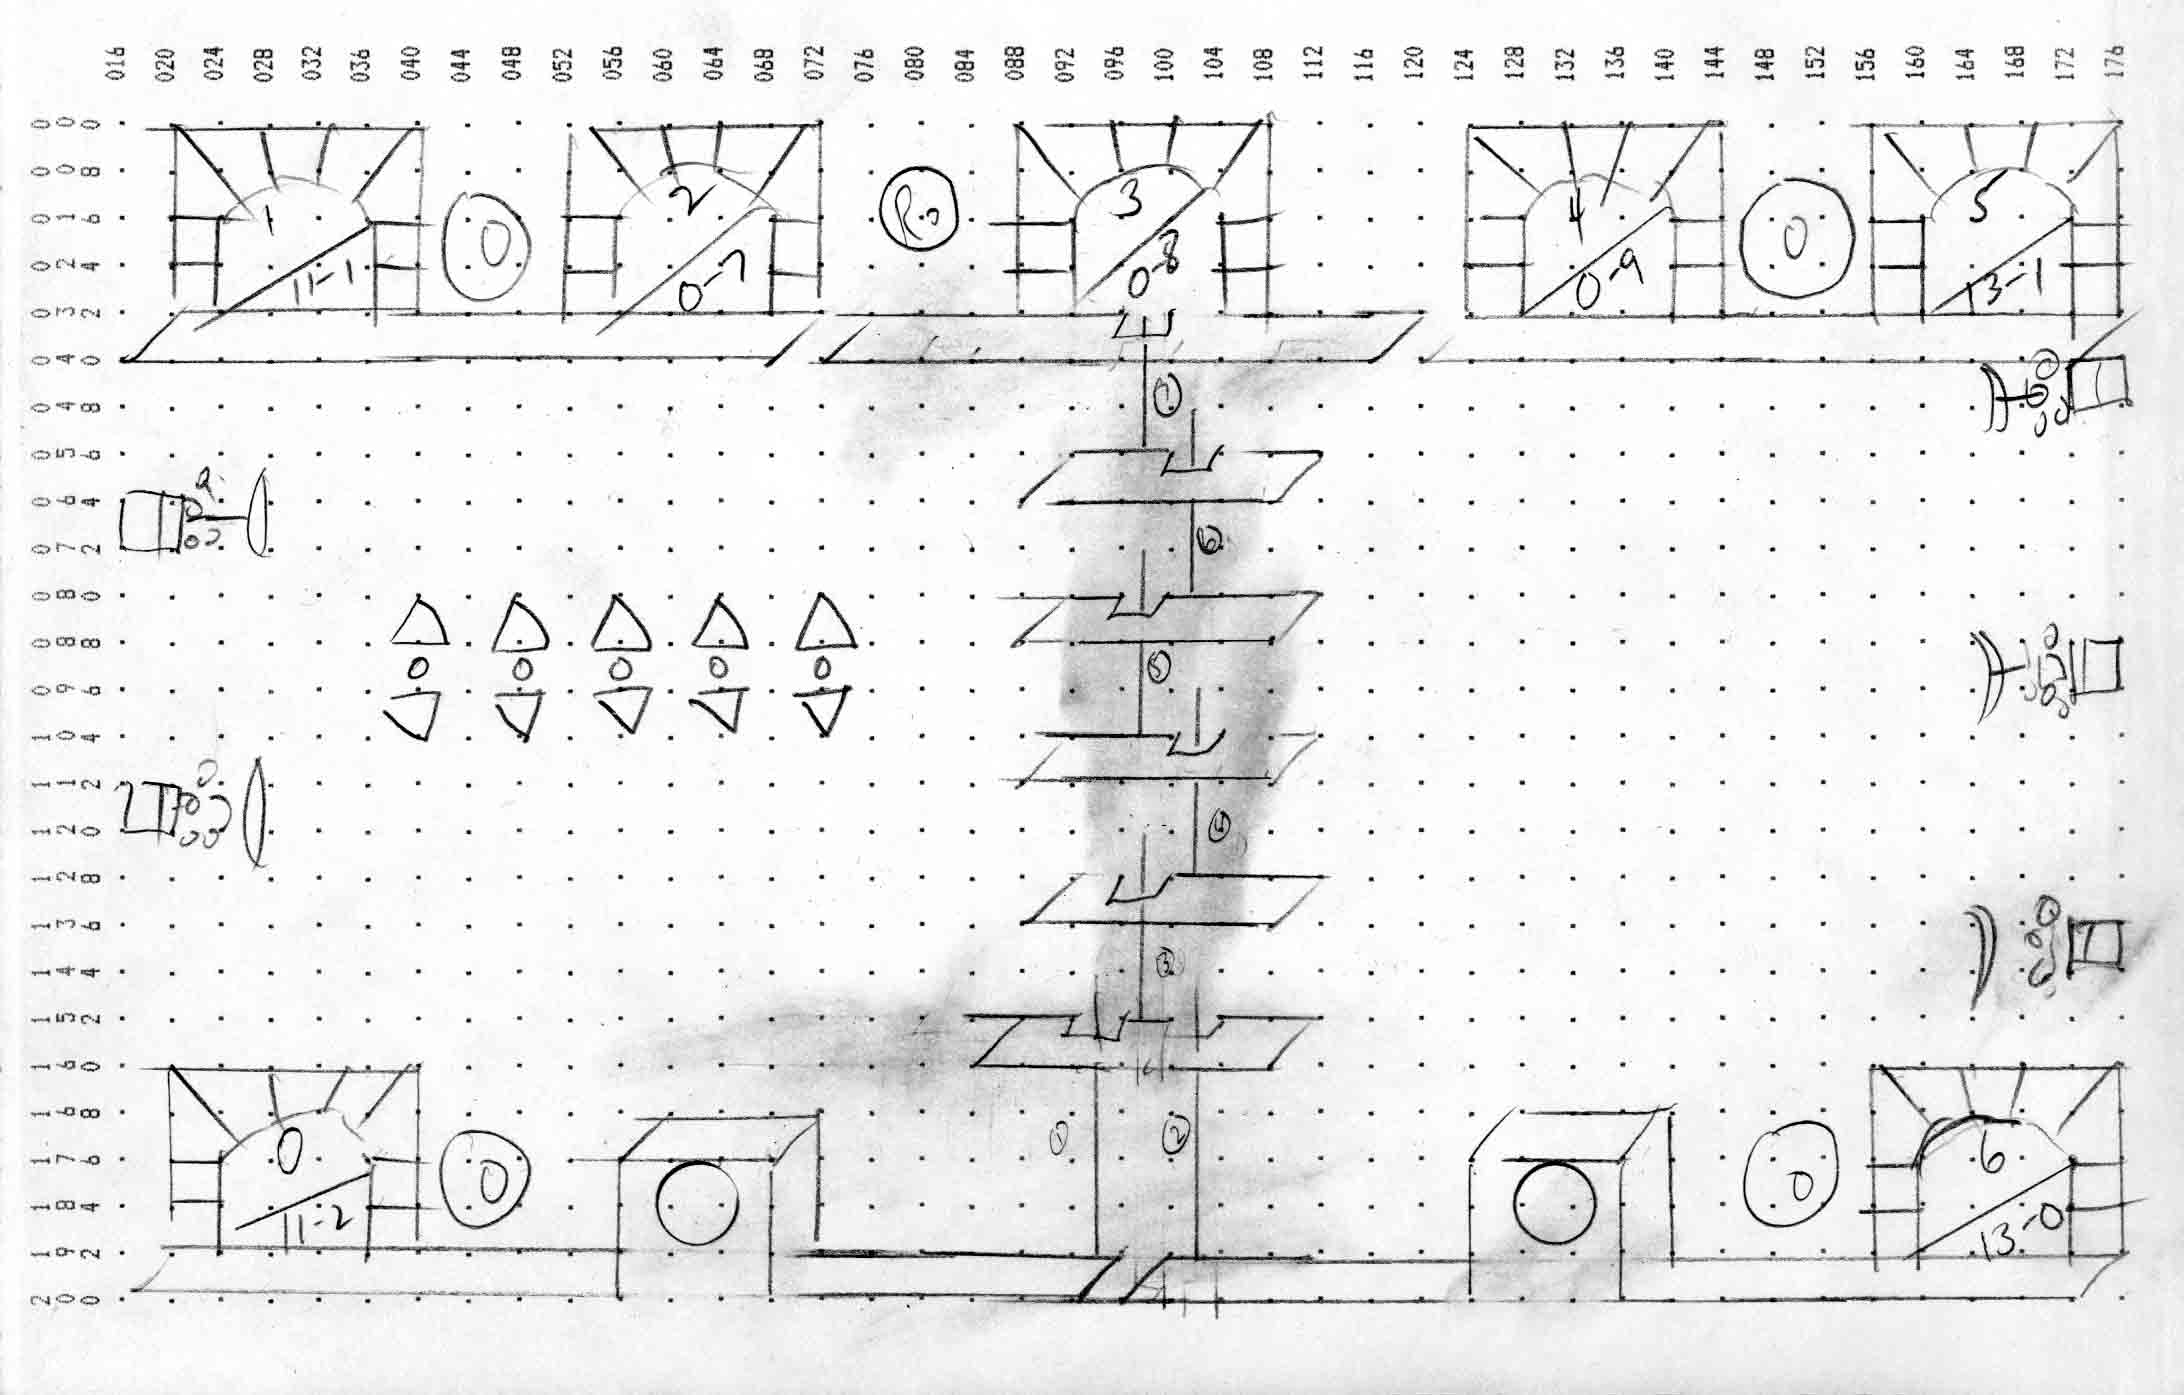 016 020 024 028 032 036 040 044 048 052 056 060 064 068 072 076 080 084 088 092 096 100 104 108 112 116 120 124 128 132 136 140 144 148 152 156 160 164 168 172 176
000
008
016
024
032
040
048
056
064
072
080
088
096
104
112
120
128
136
144
152
160
168
176
184
192
200
1 2 3 4 5
11-1 0 0-7 R0 0-8 0-9 0 13-1
7
6
0 0 0 0 0
5
4
3
0 0 1 2 0 6
11-2 13-0